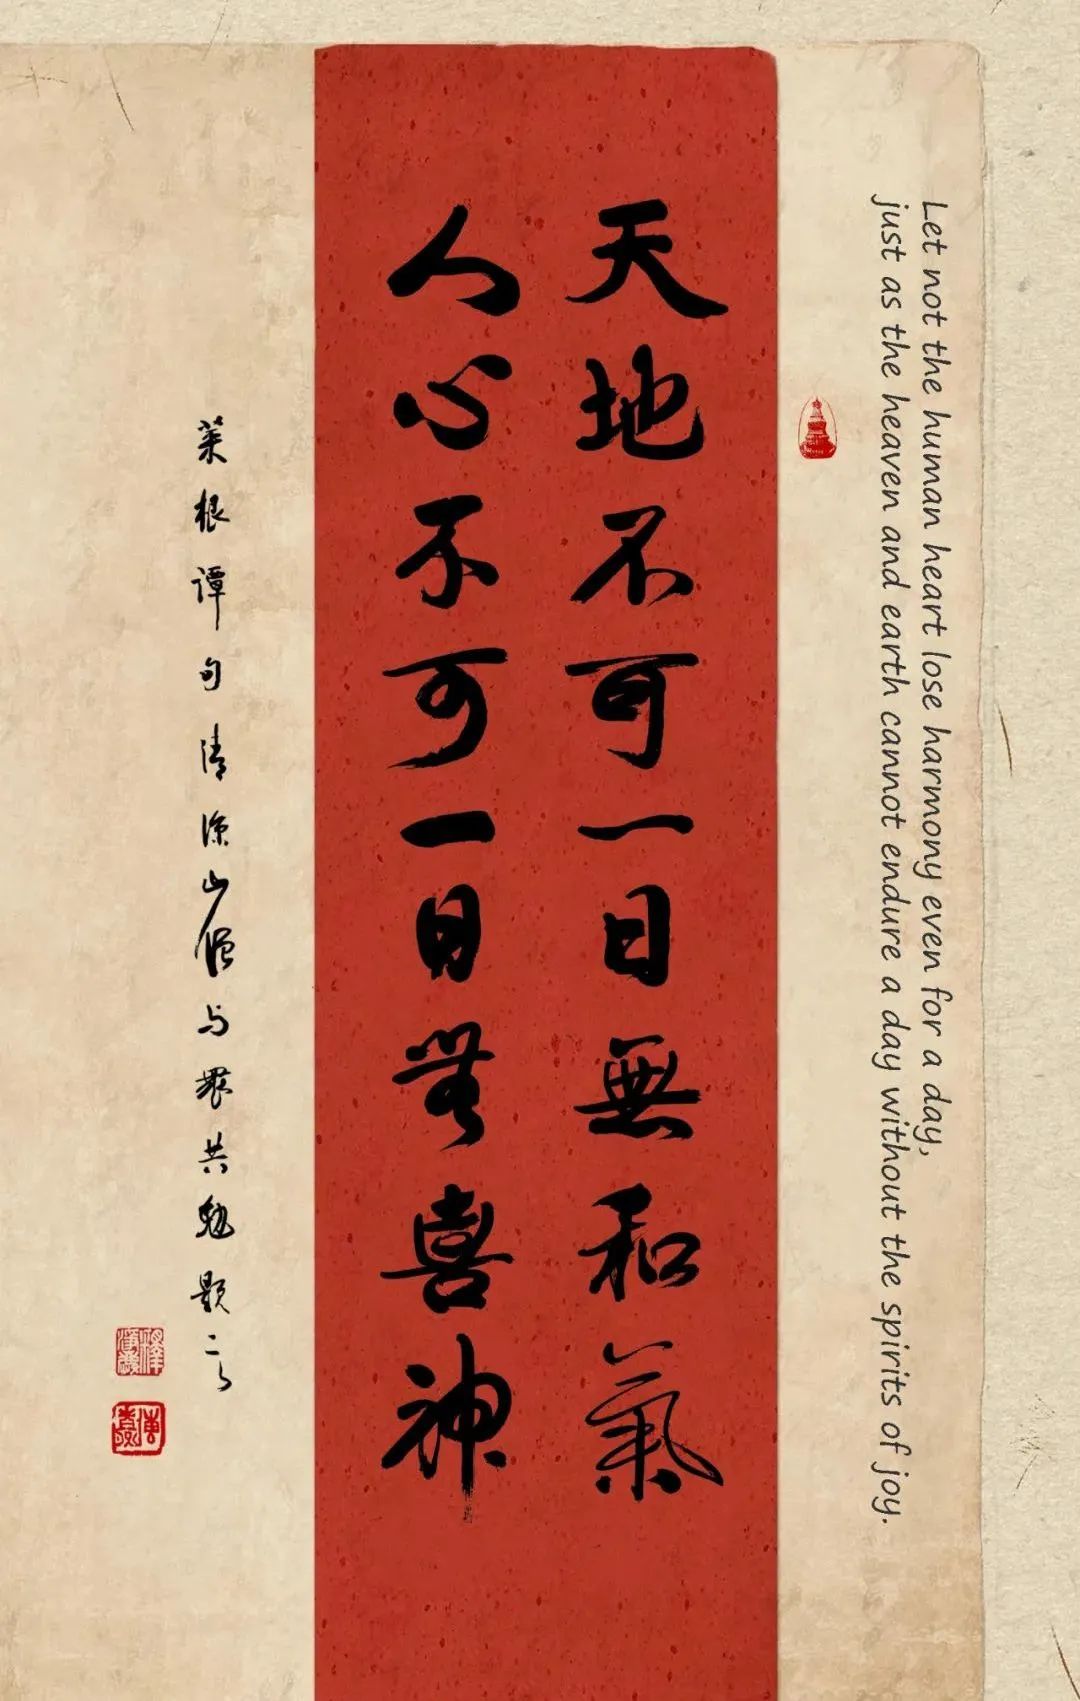 Let not the human heart lose harmony even for a day,
just as the heaven and earth cannot endure a day without the spirits of joy.
天地不可一日無和氣
人心不可一日無喜神
菜根谭句清凉山履与眾共勉题之